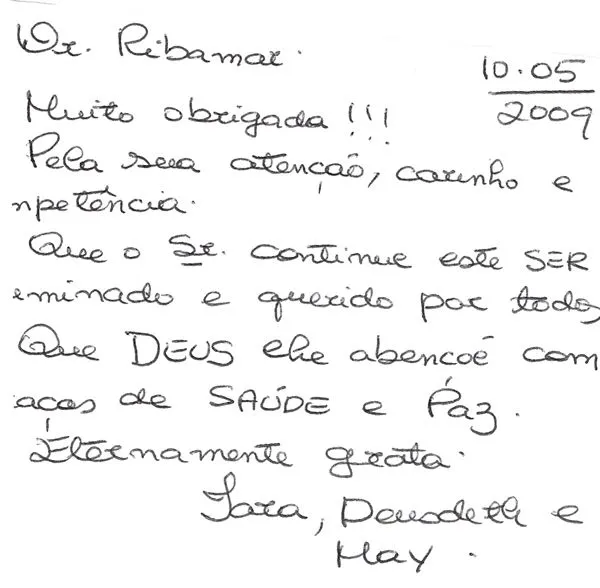 Dr. Ribamar.
10.05
2009
Muito obrigada!!!
Pela sua atenção, carinho e
npetência.
Que o Sr. continue este SER
eminado e querido por todos
Que DEUS lhe abençoe com
aças de SAÚDE e Paz.
Eternamente grata.
Iara, Deusdeth e
May.